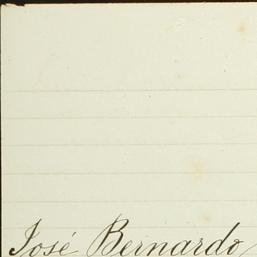 José Bernardo